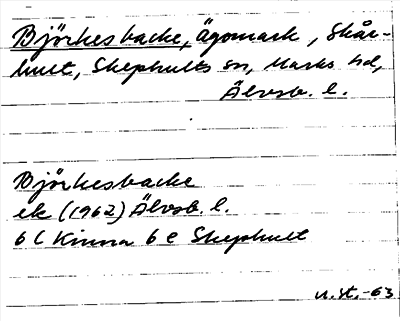 Björkesbacke, Ägomark, Skår-
hult, Skephults sn, Marks hd,
Älvsb. l.
Björkesbacke
ek (1962) Älvsb. l.
6 C Kinna 6 e Skephult
u. st. -63